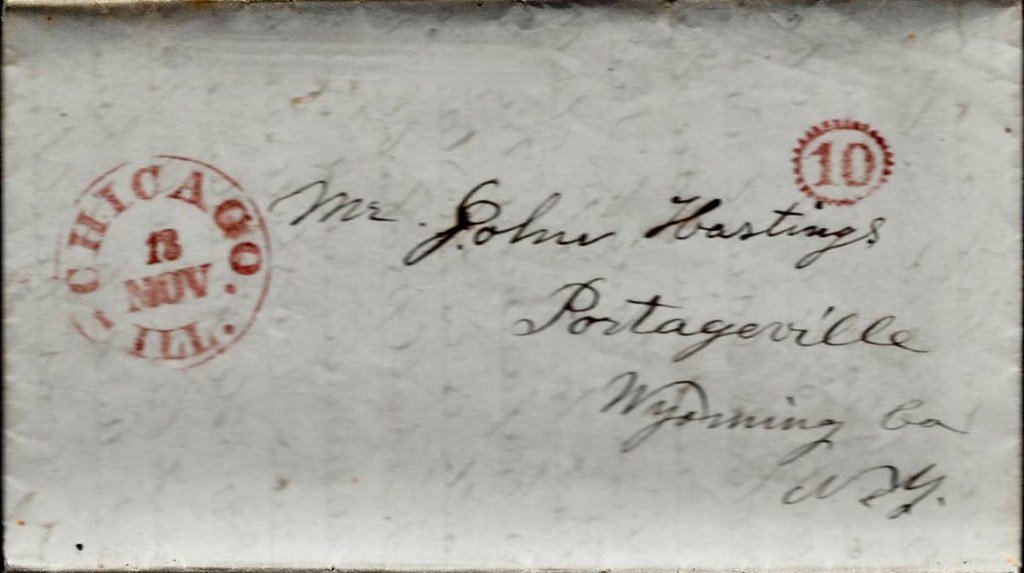 CHICAGO
13
NOV.
ILL.
10
Mr. John Hastings
Portageville
Wyoming Co
N.Y.